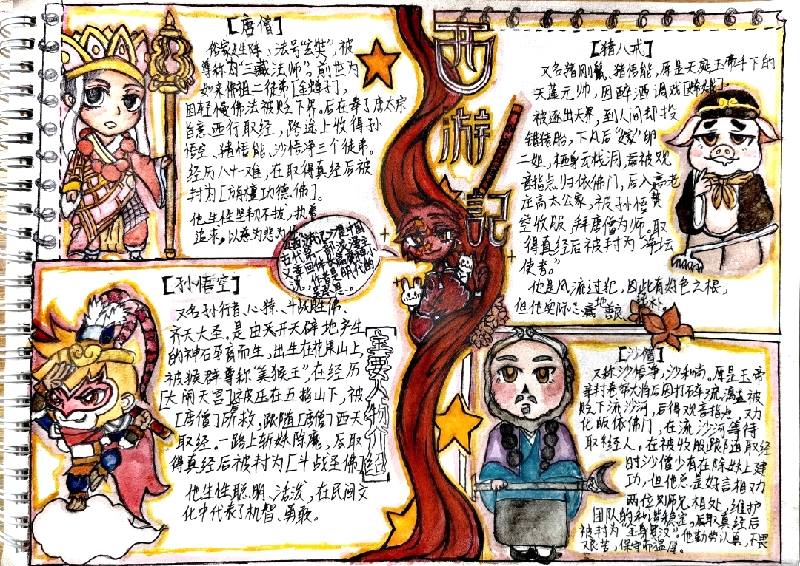 西游記
主要人物介绍
【唐僧】
俗家姓陈，法号"玄奘"，被
尊称为"三藏法师"，前世为
如来佛祖二徒弟[金蝉子]，
因轻慢佛法被贬下界。后在奉了唐太宗
旨意西行取经，路途上收得孙
悟空、猪悟能、沙悟净三个徒弟。
经历八十一难，在取得真经后被
封为[旃檀功德佛]。
他生性坚韧不拔，执着
追求，以慈为悲为怀
【孙悟空】
又名孙行者、心猿、斗战胜佛、
齐天大圣，是由天开天辟地产生
的神石孕育而生，出生在花果山上，
被猴群尊称"美猴王"，在经历
[大闹天宫]后被压在五指山下，被
[唐僧]所救，跟随[唐僧]西天
取经。一路上斩妖降魔，后取
得真经后被封为[斗战圣佛]
他生性聪明、活泼，在民间文
化中代表了机智、勇敢。
【猪八戒】
又名猪刚鬣、猪悟能，原是天庭玉帝手下的
天蓬元帅，因醉酒调戏[嫦娥]，
被逐出天界，到人间却投
错猪胎，下凡后"嫁"卵
二姐，栖身云栈洞，后被观
音指点归依佛门，后入高老
庄高太公家，被孙悟
空收服，拜唐僧为师。取
得真经后被封为"净坛
使者"。
他是风流过犯，因此有好色之根，
但他实际
【沙僧】
又称沙悟净，沙和尚。原是玉帝
卷帘大将后因打碎琉璃盏被
贬下流沙河，后得观音指点，劝
化皈依佛门，在流沙河等待
取经人，在被收服跟随取经
的沙僧少有在降妖上建
功，但他总是好言相劝
两位师兄相处，维护
团队的和谐稳定。后取真经后
被封为"金身罗汉"他勤劳认真，不畏
艰苦，保守而温厚。